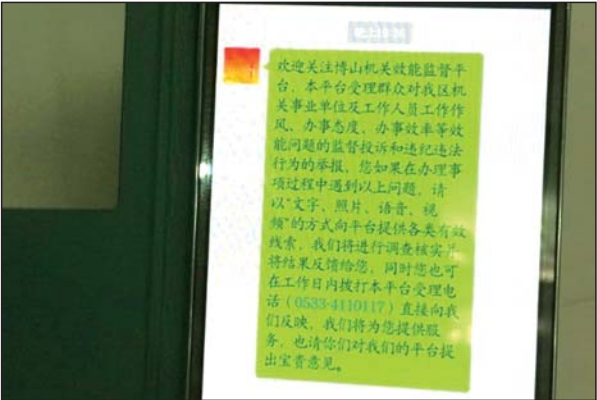 欢迎关注博山机关效能监督平
台，本平台受理群众对我区机
关事业单位及工作人员工作作
风、办事态度、办事效率等效
能问题的监督投诉和违纪违法
行为的举报，您如果在办理事
项过程中遇到以上问题，请
以"文字、照片、语音、视
频"的方式向平台提供各类有效
线索，我们将进行调查核实并
将结果反馈给您，同时您也可
在工作日内拨打本平台受理电
话（0533-4110117）直接向我
们反映，我们将为您提供服
务，也请你们对我们的平台提
出宝贵意见。